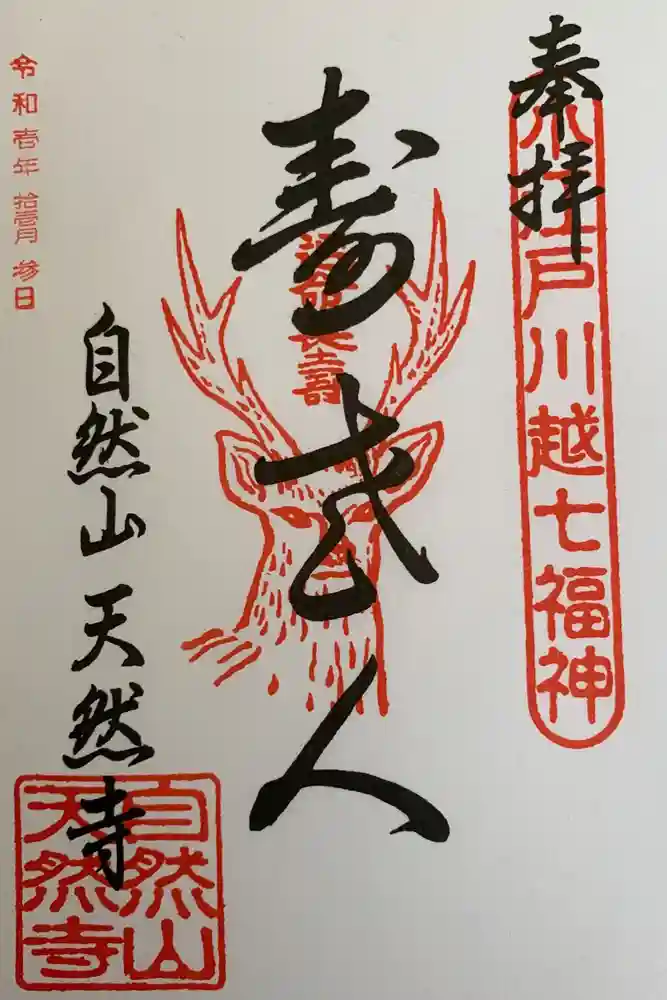 奉拝
小江戸川越七福神
寿老人
延命長壽
自然山 天然寺
自然山
天然寺
令和壱年 拾壹月 参日